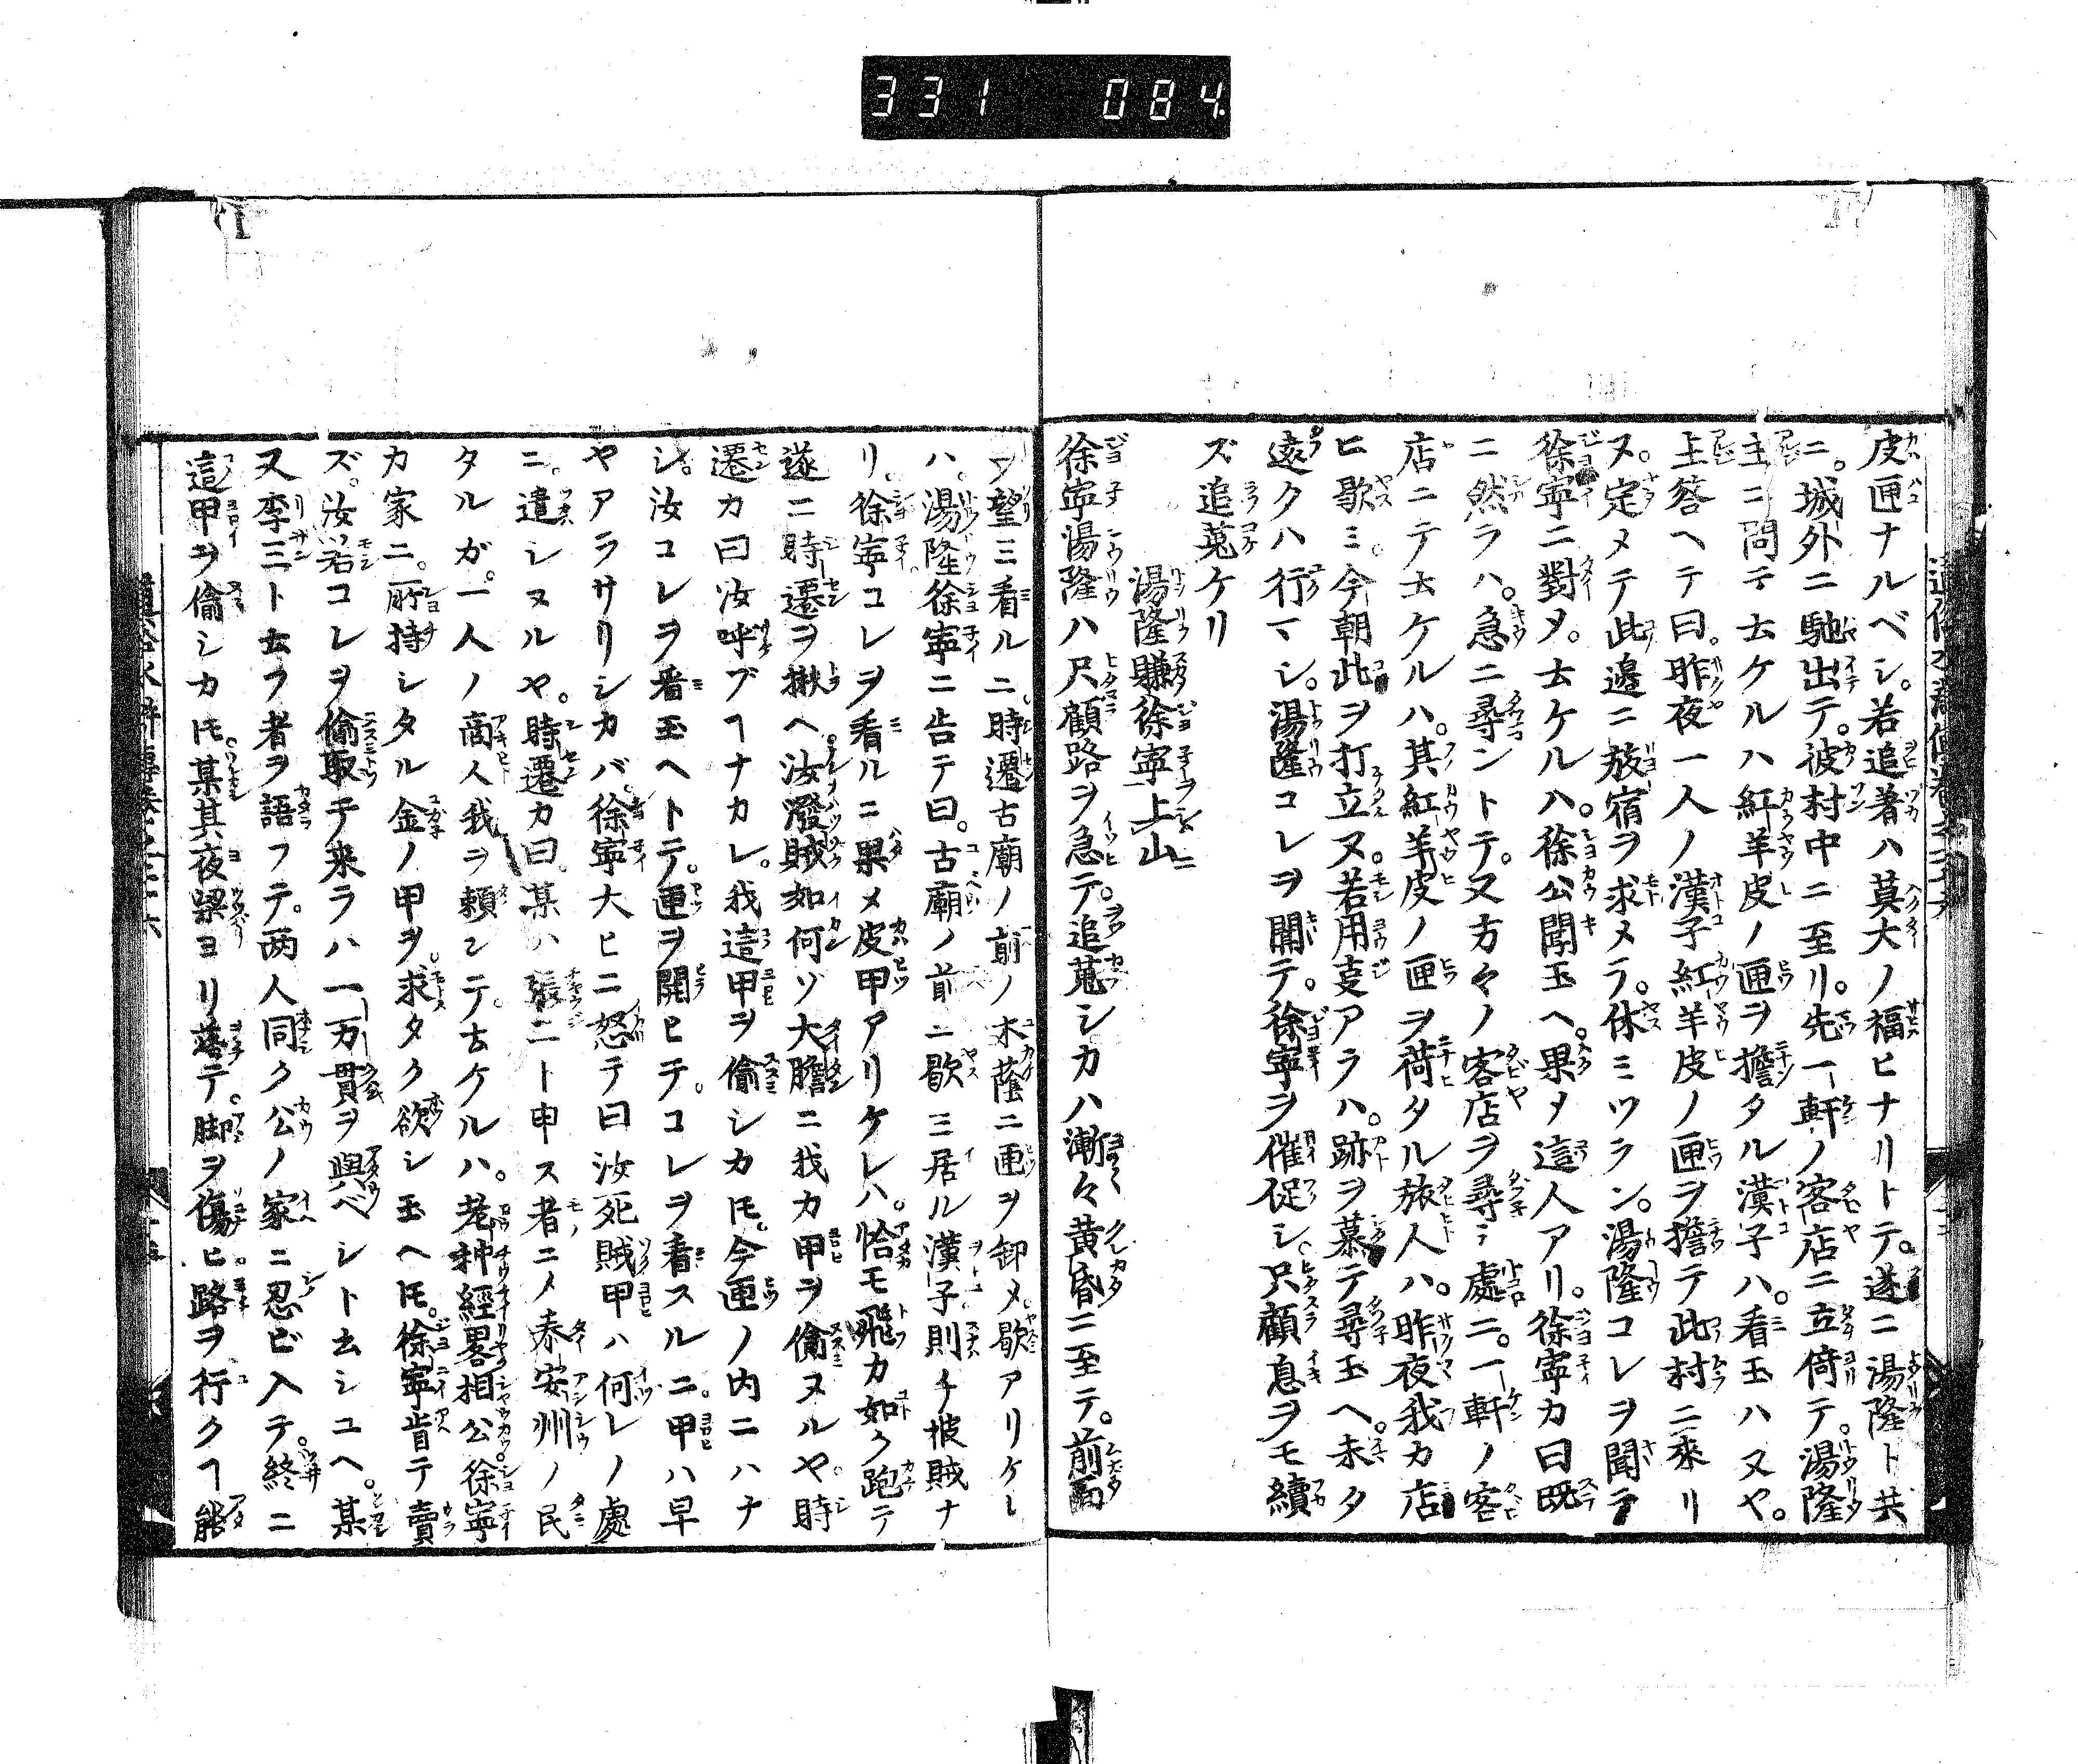 331 084
皮匣ナルベシ。若追著ハ莫大ノ福ヒナリトテ。遂ニ湯隆ト共
ニ。城外ニ馳出テ。彼村中ニ至リ。先一軒ノ客店ニ立倚テ。湯隆
主ニ問テ云ケルハ紅羊皮ノ匣ヲ擔タル漢子ハ。看玉ハヌヤ。
主答ヘテ曰。昨夜一人ノ漢子紅羊皮ノ匣ヲ擔テ此村ニ來リ
ヌ。定メテ此邉ニ放宿ヲ求メラ。休ミツラン。湯隆コレヲ聞テ
徐寧ニ對メ。云ケルハ。徐公聞玉ヘ。果メ這人アリ。徐寧カ曰既
ニ然ラハ。急ニ尋ントテ。又方々ノ客店ヲ尋テ處ニ。一軒ノ客
店ニテ云ケルハ。其紅羊皮ノ匣ヲ荷タル旅人ハ。昨夜我カ店
ヒ歇ミ。今朝此ヲ打立ヌ。若用支アラハ。跡ヲ慕テ尋玉ヘ。未タ
遠クハ行マシ。湯隆コレヲ聞テ。徐寧ヲ催促シ。只顧息ヲモ續
ズ追蒐ケリ
湯隆賺徐寧上山
徐寧湯隆ハ只顧路ヲ急テ。追蒐シカハ漸々黄昏ニ至テ。前面
ヲ望ミ看ルニ。時遷古廟ノ前ノ木蔭ニ匣ヲ卸メ歇アリケレ
ハ。湯隆徐寧ニ告テ曰。古廟ノ前ニ歇ミ居ル漢子則チ彼賊ナ
リ。徐寧コレヲ看ルニ果メ皮甲アリケレハ。恰モ飛カ如ク跑テ
遂ニ時遷ヲ揪ヘ。汝潑賊如何ゾ大膽ニ我カ甲ヲ偷ヌルヤ。時
遷カ曰汝呼ブヿナカレ。我這甲ヲ偷シカ𪜈。今匣ノ内ニハナ
シ。汝コレヲ看玉ヘトテ。匣ヲ開ヒテ。コレヲ看スルニ。甲ハ早
ヤアラサリシカバ。徐寧大ヒニ怒テ曰汝死賊甲ハ何レノ處
ニ。遣シヌルヤ。時遷カ曰。某ハ張二ト申ス者ニメ泰安州ノ民
タルガ。一人ノ商人我ヲ頼ンテ。云ケルハ。老种經畧相公。徐寧
カ家ニ。所持シタル金ノ甲ヲ。求タク欲シ玉ヘ𪜈。徐寧肯テ賣
ズ。汝若コレヲ偷取チ来ラハ一万貫ヲ與ベシト云シユヘ。某
又李三ト云フ者ヲ語フテ。两人同ク公ノ家ニ忍ビ入テ。終ニ
這甲ヲ偷シカ𪜈。某其夜梁ヨリ落テ。脚ヲ傷ヒ。路ヲ行クヿ能